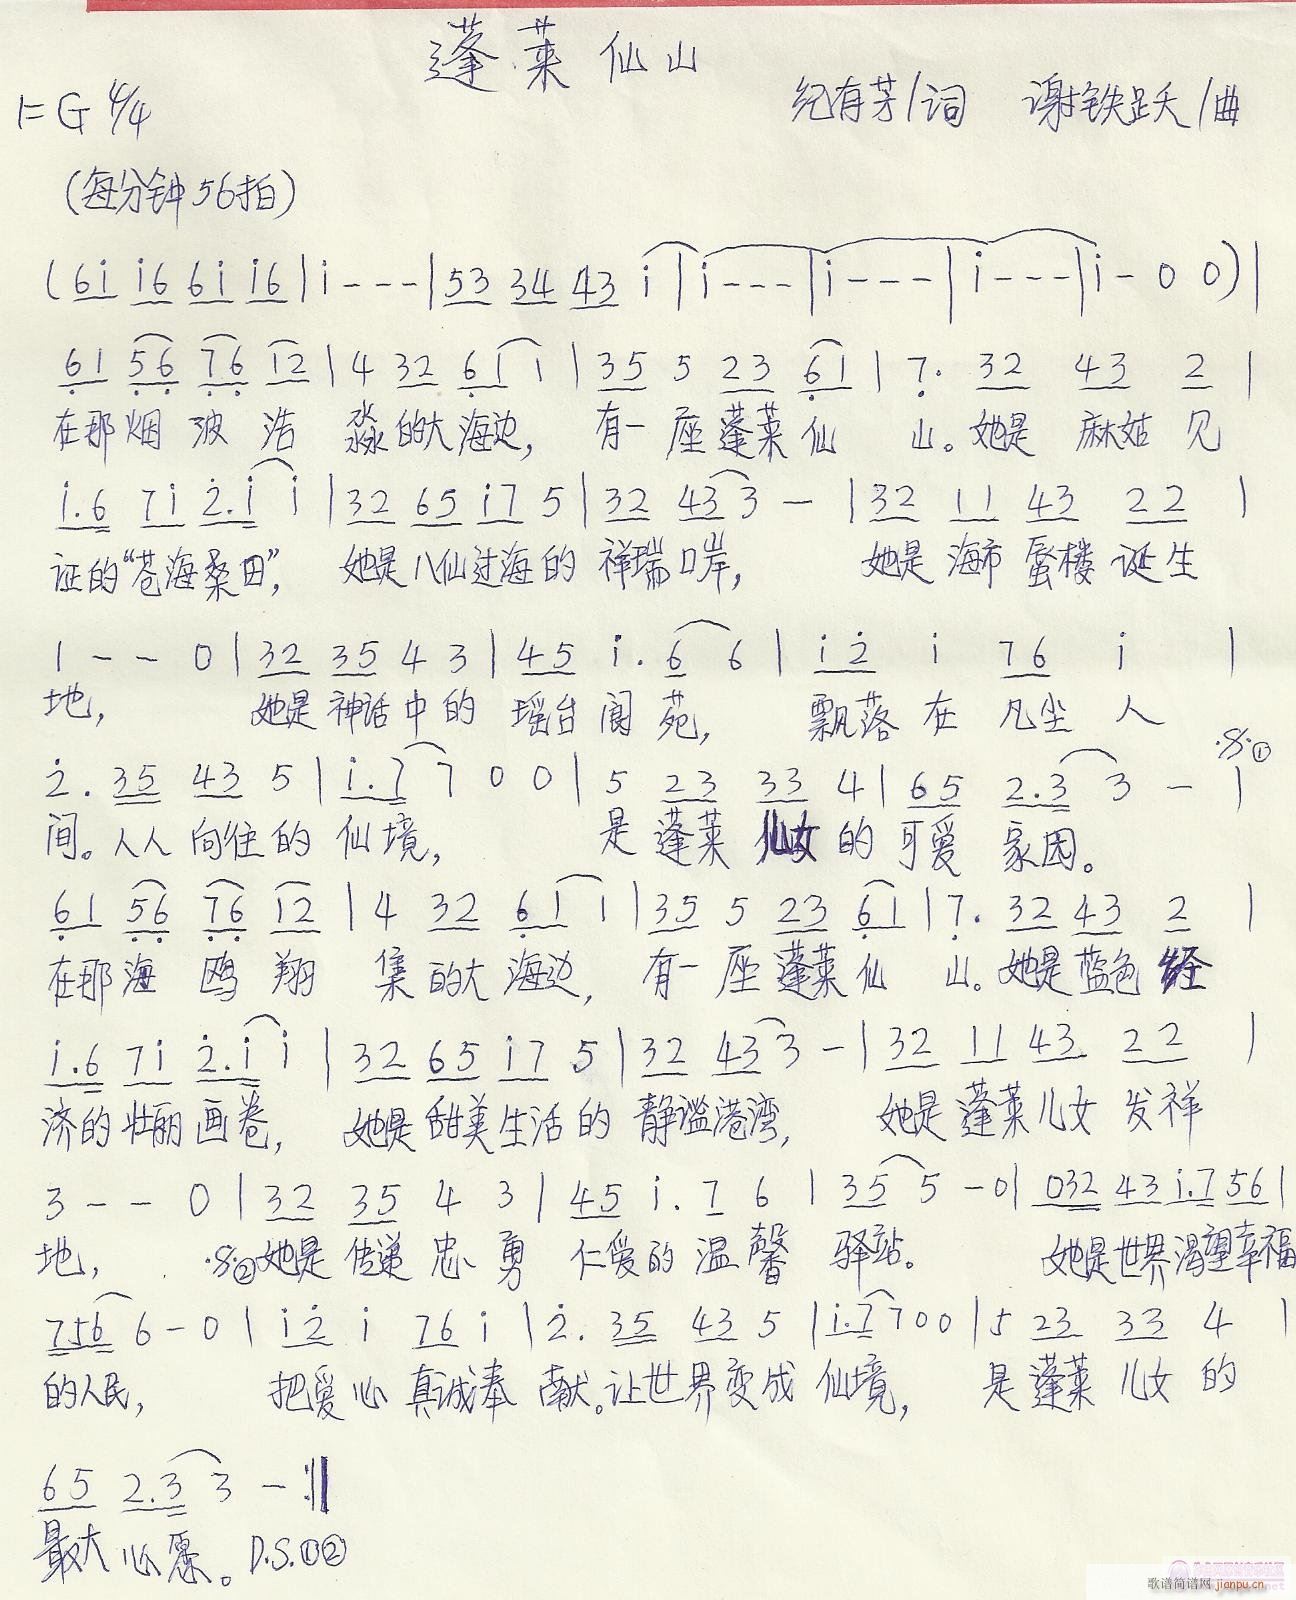 蓬莱仙山
1=G 4/4
纪有芳/词 谢铁跃/曲
(每分钟56拍)
(6i i6 6i i6|i---|53 34 43 i|i---|i---|i---|i-00)|
61 56 76 12|4 32 61 1|35 5 23 61|7. 32 43 2|
在那烟波浩淼的大海边,有一座蓬莱仙山。她是麻姑见
i.6 7i 2.i i|32 65 i7 5|32 43 3 -|32 11 43 22|
证的“苍海桑田”,她是八仙过海的祥瑞口岸,她是海市蜃楼诞生
1--0|32 35 4 3|45 i.6 6|i2 i 76 i|
地,她是神话中的瑶台阆苑,飘落在凡尘人
·S·①
2. 35 43 5|i.7 7 0 0|5 23 33 4|65 2.3 3 -|
间。人人向往的仙境,是蓬莱儿女的可爱家园。
61 56 76 12|4 32 61 1|35 5 23 61|7. 32 43 2|
在那海鸥翔集的大海边,有一座蓬莱仙山。她是蓝色经
i.6 7i 2.i i|32 65 i7 5|32 43 3 -|32 11 43 22|
济的壮丽画卷,她是甜美生活的静谧港湾,她是蓬莱儿女发祥
3--0|32 35 4 3|45 i. 7 6|35 5 -0|032 43 i.7 56|
地,·S·②她是传递忠勇仁爱的温馨驿站。她是世界渴望幸福
756 6-0|i2 i 76 i|2. 35 43 5|i.7 7 0 0|5 23 33 4|
的人民,把爱心真诚奉献。让世界变成仙境,是蓬莱儿女的
65 2.3 3 -:‖
最大心愿。D.S.①②
歌谱简谱网 jianpu.cn